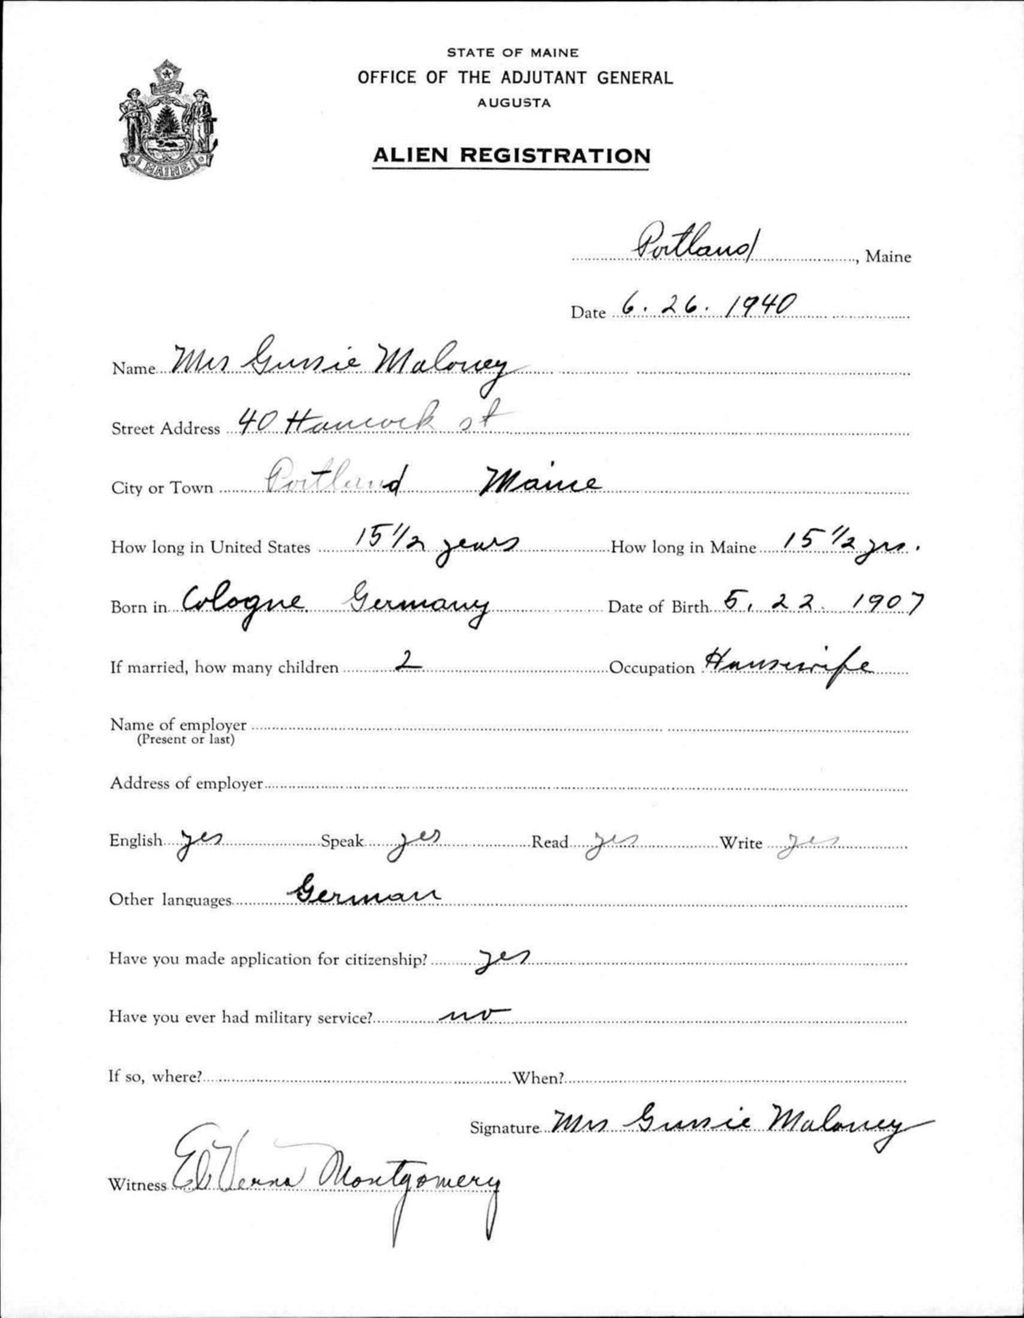 STATE OF MAINE
OFFICE OF THE ADJUTANT GENERAL
AUGUSTA
ALIEN REGISTRATION
MAINE
Portland, Maine
Date 6. 26. 1940
Name Mrs Gussie Maloney
Street Address 40 Hancock st
City or Town Portland Maine
How long in United States 15 1/2 years How long in Maine 15 1/2 yrs.
Born in Cologne Germany Date of Birth 5. 22. 1907
If married, how many children 2 Occupation Housewife
Name of employer
(Present or last)
Address of employer
English yes Speak yes Read yes Write yes
Other languages German
Have you made application for citizenship? yes
Have you ever had military service? no
If so, where? When?
Signature Mrs Gussie Maloney
Witness Verna Montgomery